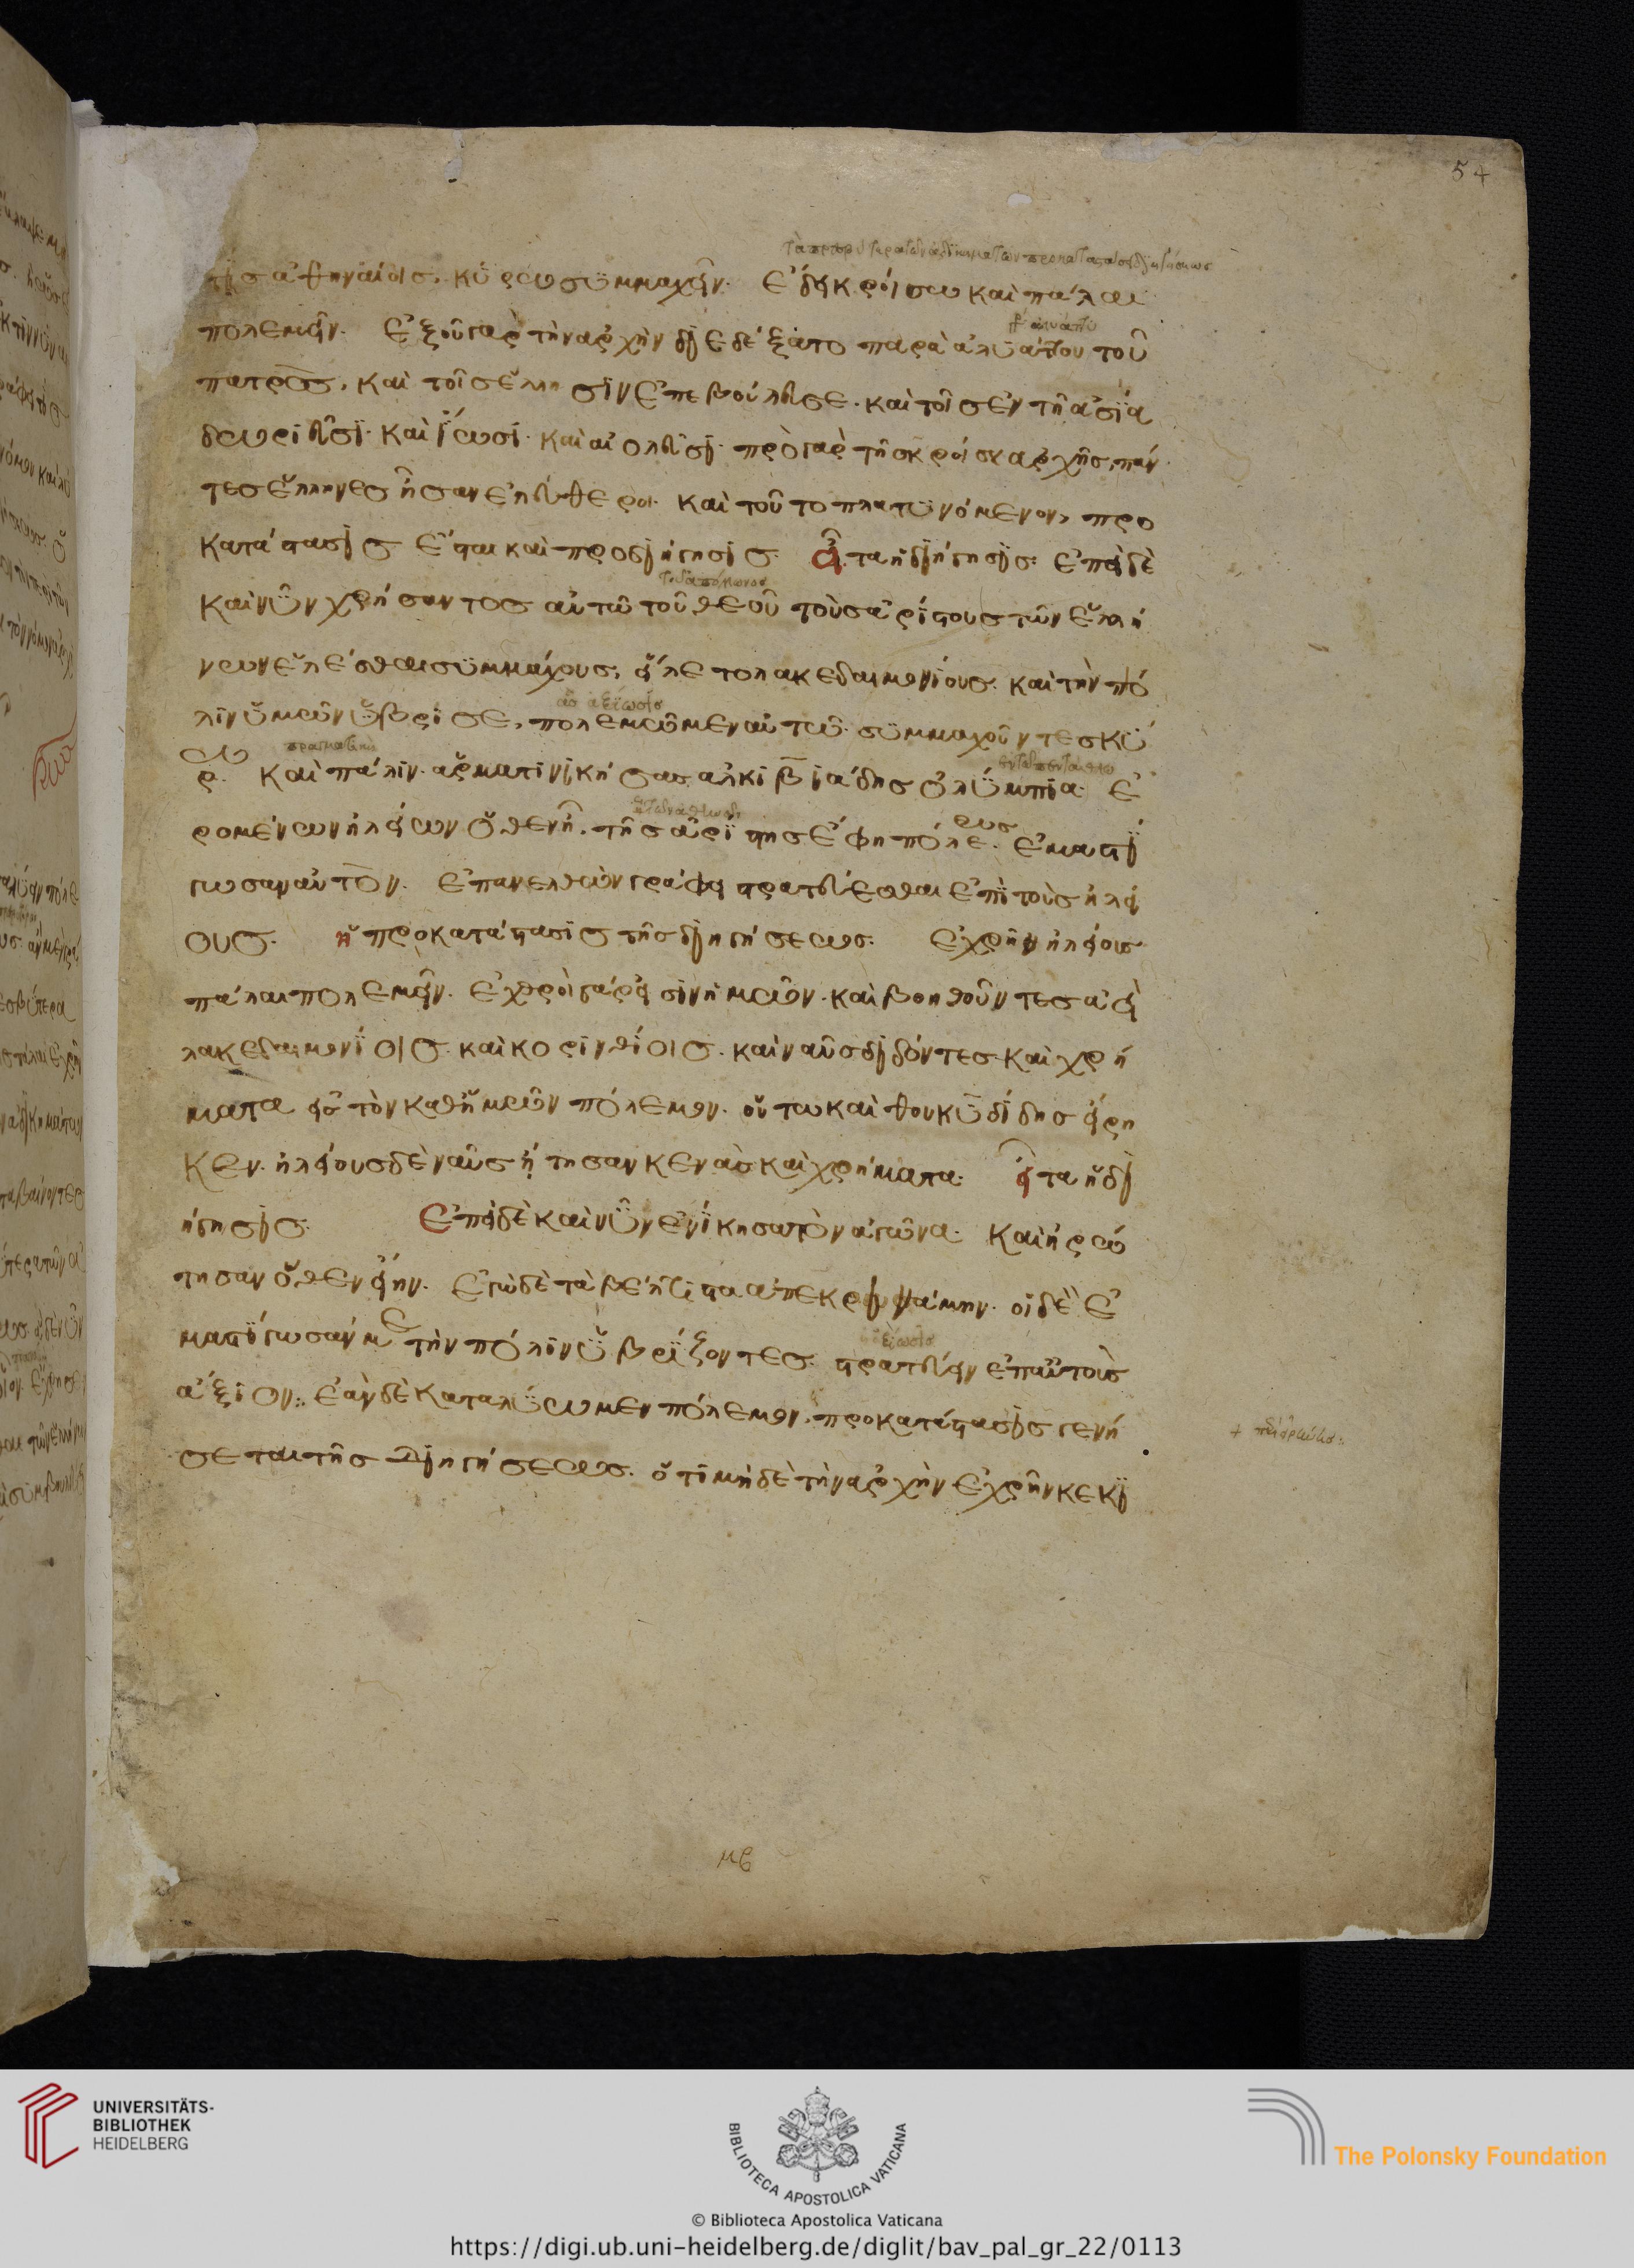 54
τῆς ἀθηναίοις, κύρω συμμαχεῖν. ἔδει κροίσω καὶ πάλαι
πολεμεῖν. ἐξ οὗ γὰρ τὴν ἀρχὴν διεδέξατο παρὰ ἀλυάττου τοῦ
πατρὸς, καὶ τοῖς ἕλλησιν ἐπεβούλευσε. καὶ τοῖς ἐν τῇ ἀσία
δωριεῦσι. καὶ ἴωσι. καὶ αἰολεῦσι. πρὸ γὰρ τῆς κροίσου ἀρχῆς, πάν
τες ἕλληνες ἦσαν ἐλεύθεροι. καὶ τοῦτο πλατυνόμενον, προ
κατάστασις ἔσται καὶ προδιήγησις. εἶτα ἡ διήγησις: ἐπεὶ δὲ
καὶ νῦν χρήσαντος αὐτῶ τοῦ θεοῦ τοὺς ἀρίστους τῶν ἑλλή
νων ἑλέσθαι συμμάχους, εἵλετο λακεδαιμονίους. καὶ τὴν πό
λιν ὑμῶν ὕβρισε, πολεμῶμεν αὐτῶ. συμμαχοῦντες κύ
ρω. καὶ πάλιν. ἅρματι νικήσας ἀλκιβιάδης ὀλύμπια. ἐ
ρομένων ἠλείων ὅθεν ἦ. τῆς ἀρίστης ἔφη πόλεως. ἐμαστί
γωσαν αὐτὸν. ἐπανελθὼν γράφει στρατεύεσθαι ἐπὶ τοὺς ἠλεί
ους. ἡ προκατάστασις τῆς διηγήσεως. ἐχρῆν ἠλείοις
πάλαι πολεμεῖν. ἐχθροὶ γάρ εἰσιν ἡμῶν. καὶ βοηθοῦντες ἀεὶ
λακεδαιμονίοις. καὶ κορινθίοις. καὶ ναῦς διδόντες καὶ χρή
ματα εἰς τὸν καθ' ἡμῶν πόλεμον. οὕτω καὶ θουκυδίδης εἴρη
κεν. ἠλείους δὲ ναῦς ἤτησαν κενὰς καὶ χρήματα. εἶτα ἡ δι
ήγησις. ἐπεὶ δὲ καὶ νῦν ἐνίκησα τὸν ἀγῶνα. καὶ ἠρώ
τησαν ὅθεν εἴην. ἐγὼ δὲ τὰ βέλτιστα ἀπεκρινάμην. οἱ δὲ ἐ
μαστίγωσάν με τὴν πόλιν ὑβρίζοντες. στρατεύειν ἐπ' αὐτοὺς
ἄξιον: ἐὰν δὲ καταλύωμεν πόλεμον, προκατάστασις γενή
σεται τῆς διηγήσεως. ὅτι μηδὲ τὴν ἀρχὴν ἐχρῆν κεκι
UNIVERSITÄTS-
BIBLIOTHEK
HEIDELBERG
BIBLIOTECA APOSTOLICA VATICANA
The Polonsky Foundation
© Biblioteca Apostolica Vaticana
https://digi.ub.uni-heidelberg.de/diglit/bav_pal_gr_22/0113